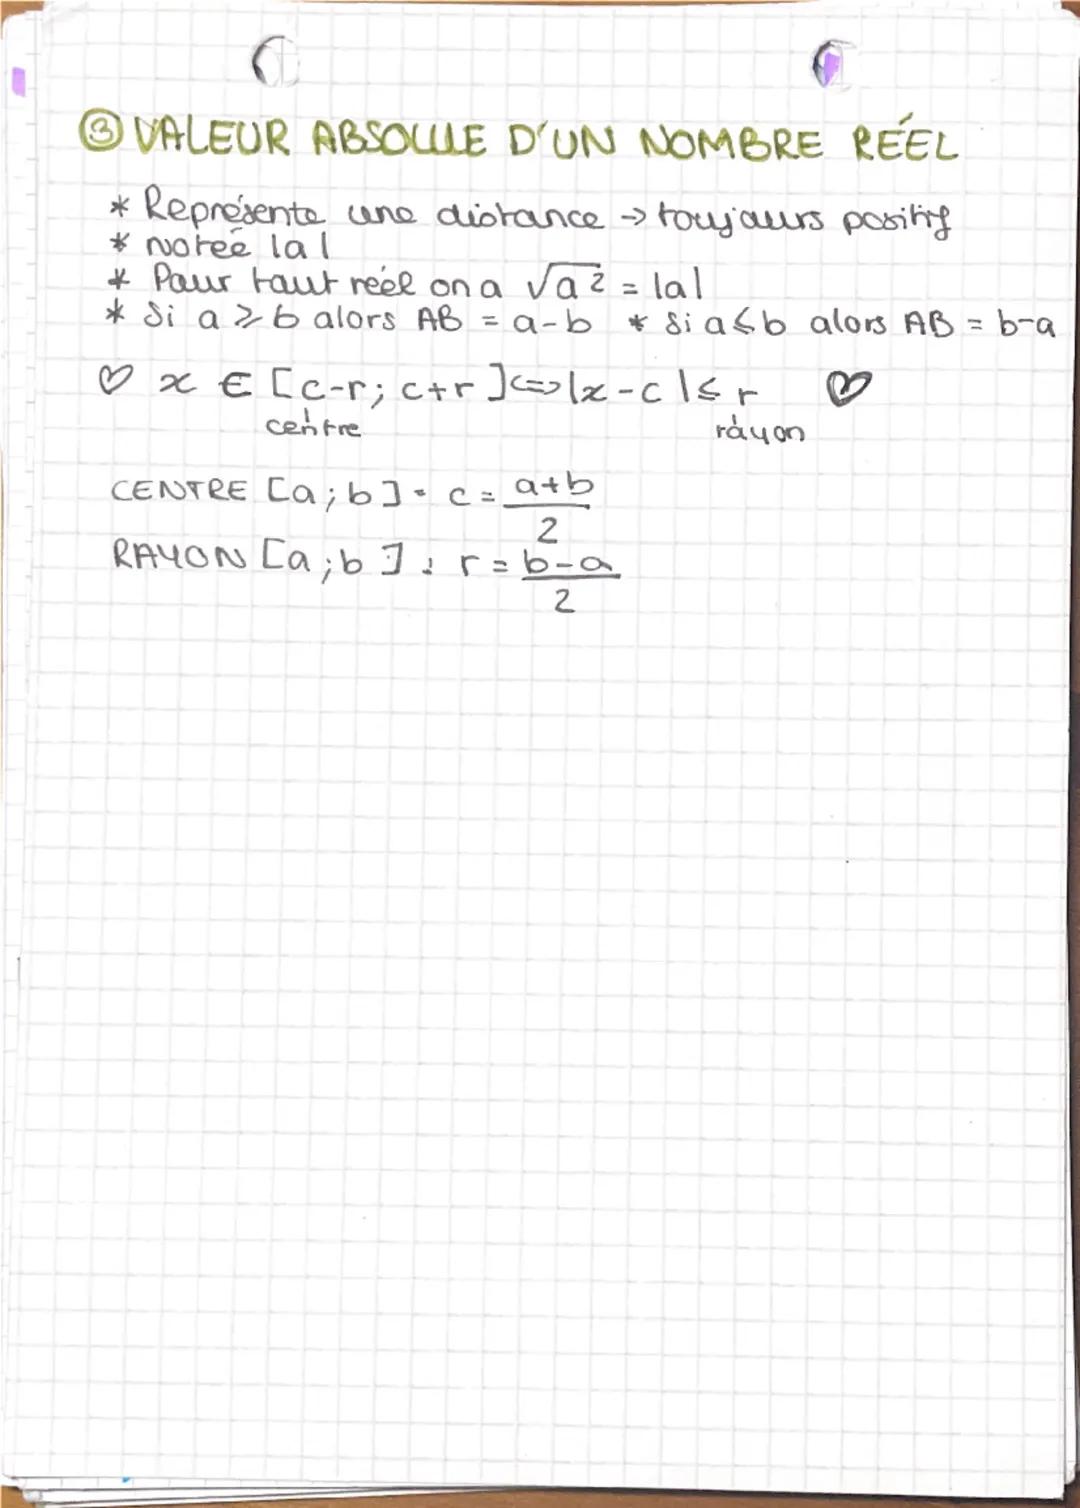 ③ VALEUR ABSOLUE D'UN NOMBRE RÉEL
* Représente une distance → toujours positif
* notée |a|
* Pour tout réel on a √a² = |a|
* Si a ⩾ b alors AB = a-b * Si a ⩽ b alors AB = b-a
♡ x ∈ [c-r; c+r] ⟺ |x-c| ≤ r ♡
centre rayon
CENTRE [a;b] : c = a+b
2
RAYON [a;b] : r = b-a
2